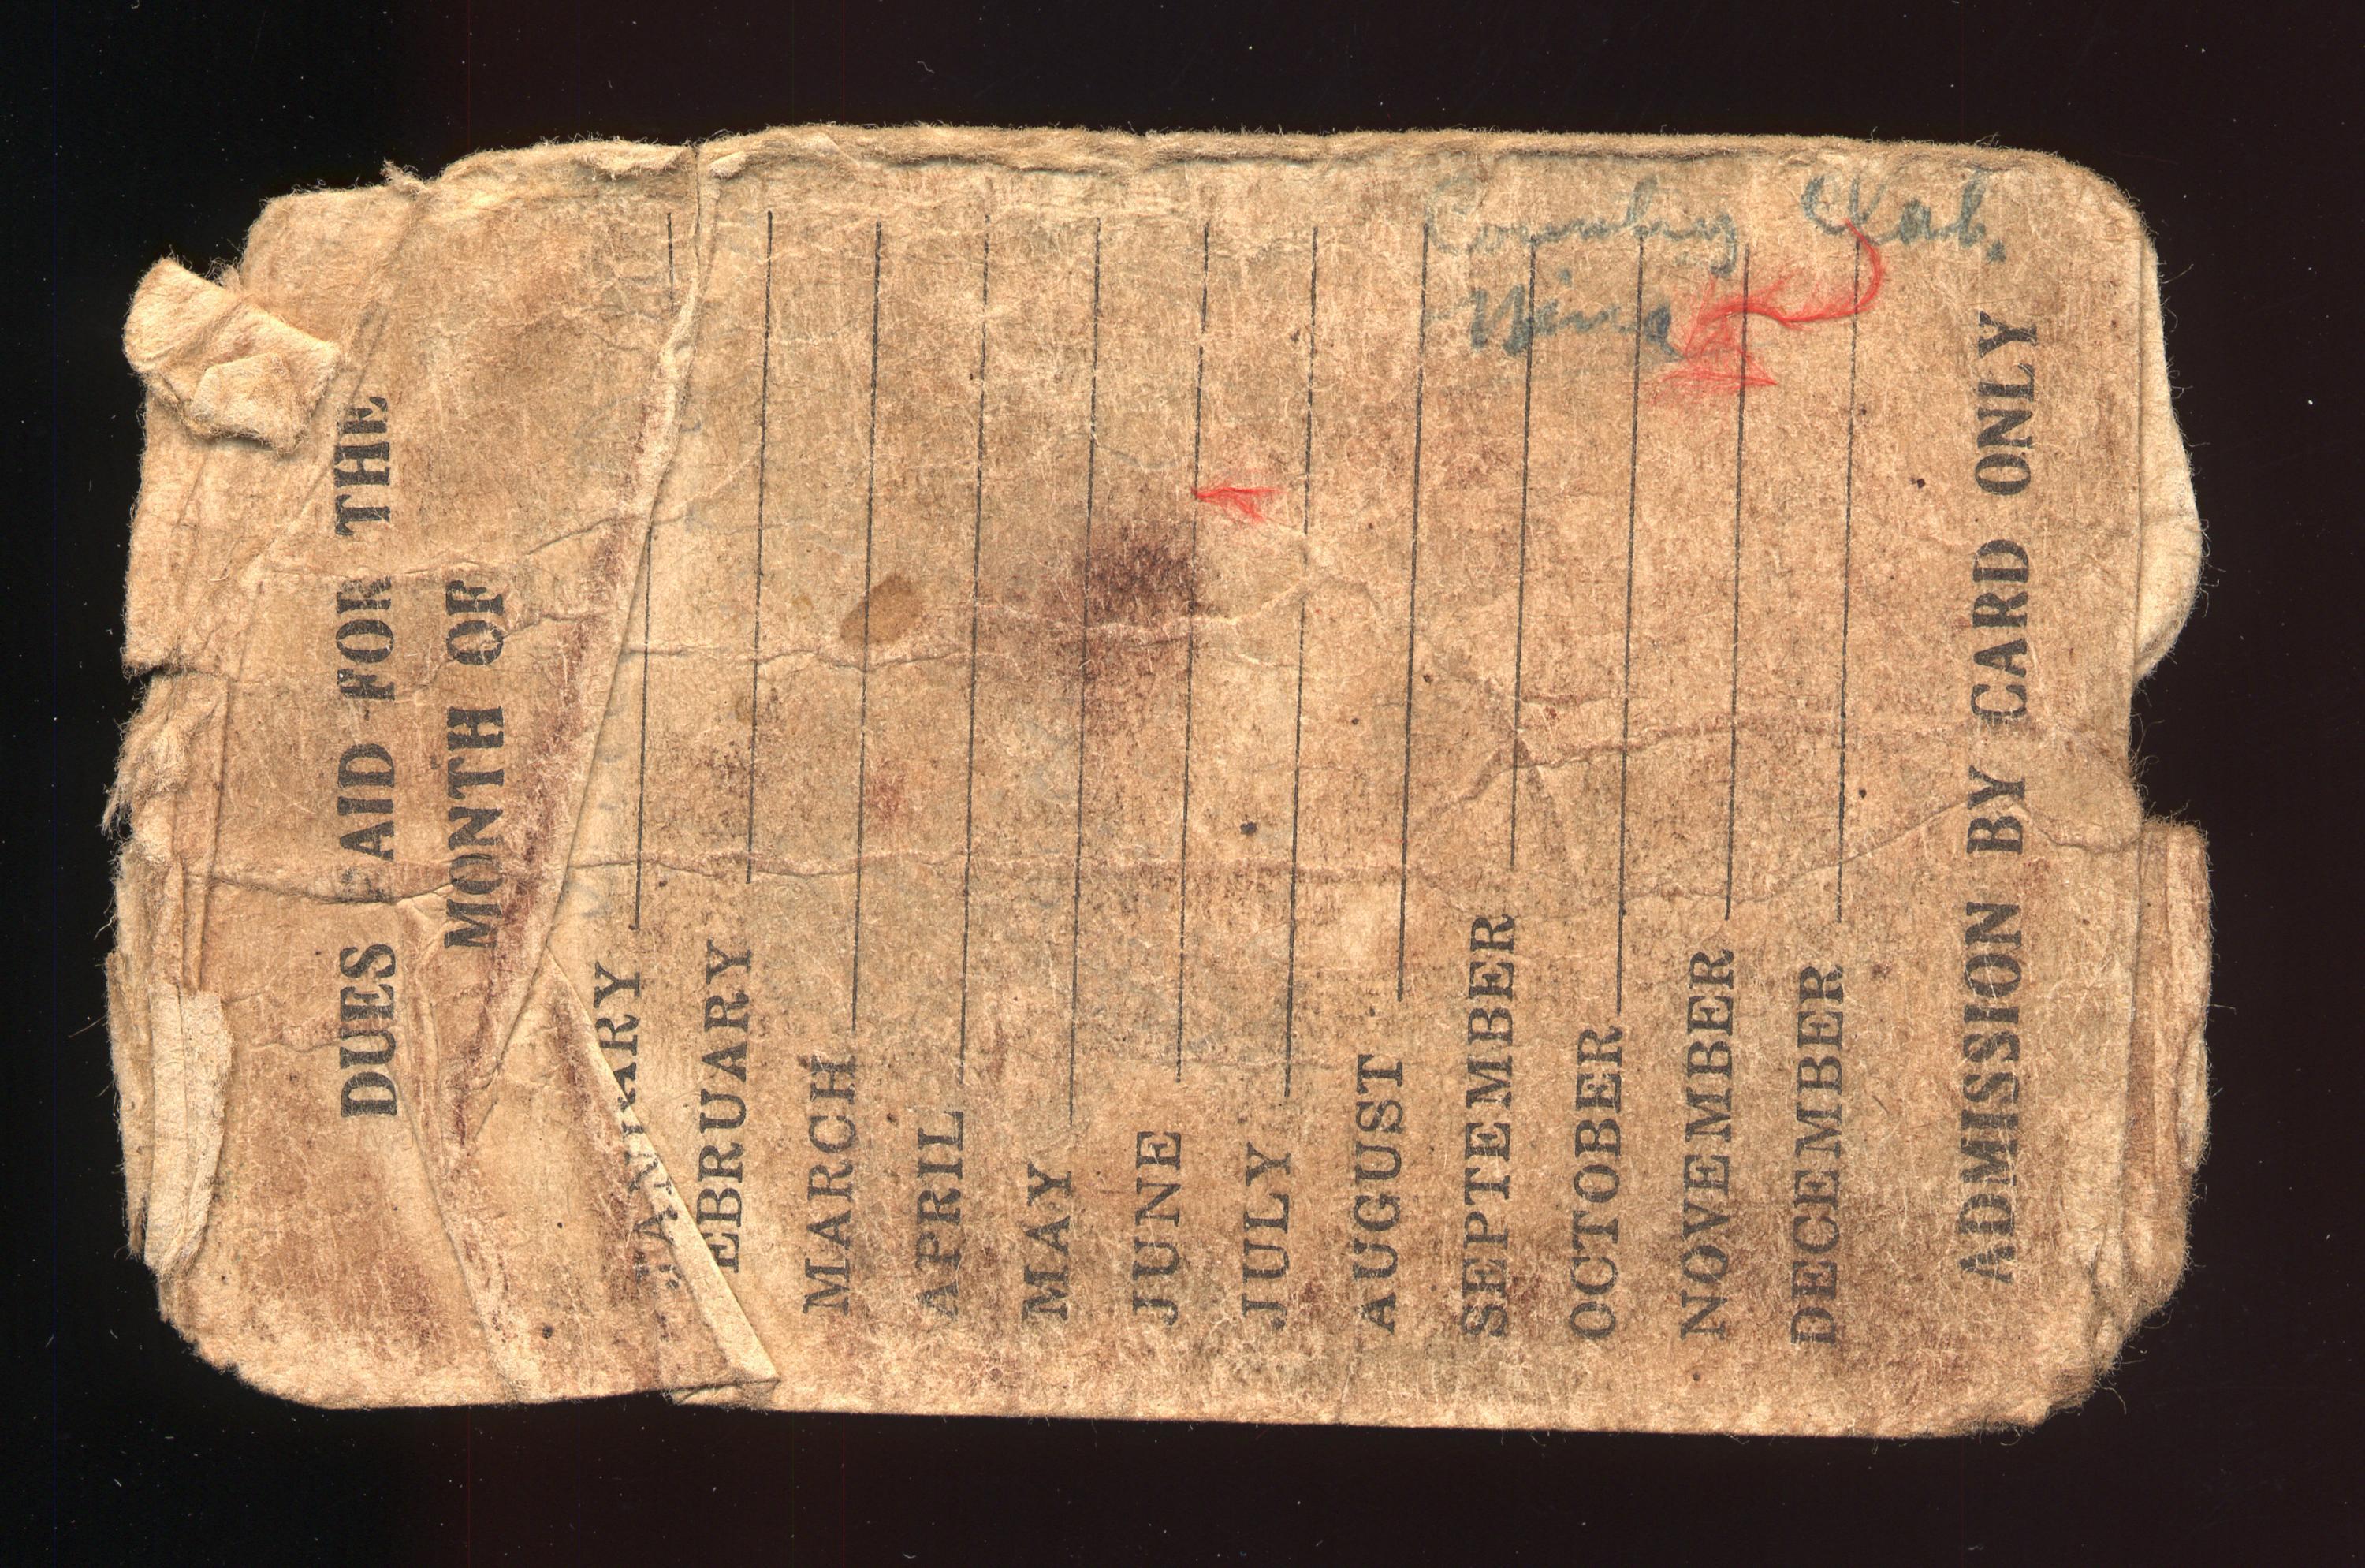 DUES PAID FOR THE
MONTH OF
JANUARY
FEBRUARY
MARCH
APRIL
MAY
JUNE
JULY
AUGUST
SEPTEMBER
OCTOBER
NOVEMBER
DECEMBER
ADMISSION BY CARD ONLY
Country Club.